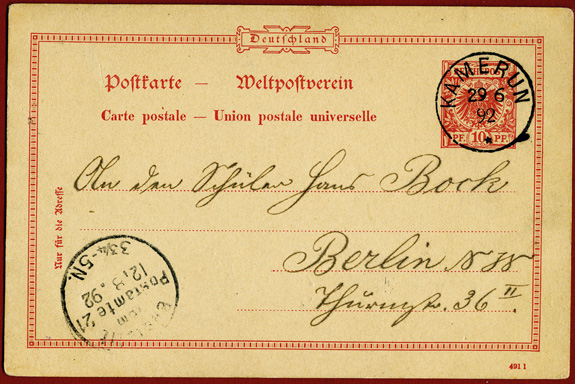 Deutschland
Postkarte — Weltpostverein
Carte postale — Union postale universelle
KAMERUN
29 6
92
PF. 10 PF.
An den Schüler Hans Bock
Berlin NW
Thürmstr. 36 II
Nur für die Adresse
Postamte 21
vom
12.8.92
3¾-5N.
491 1